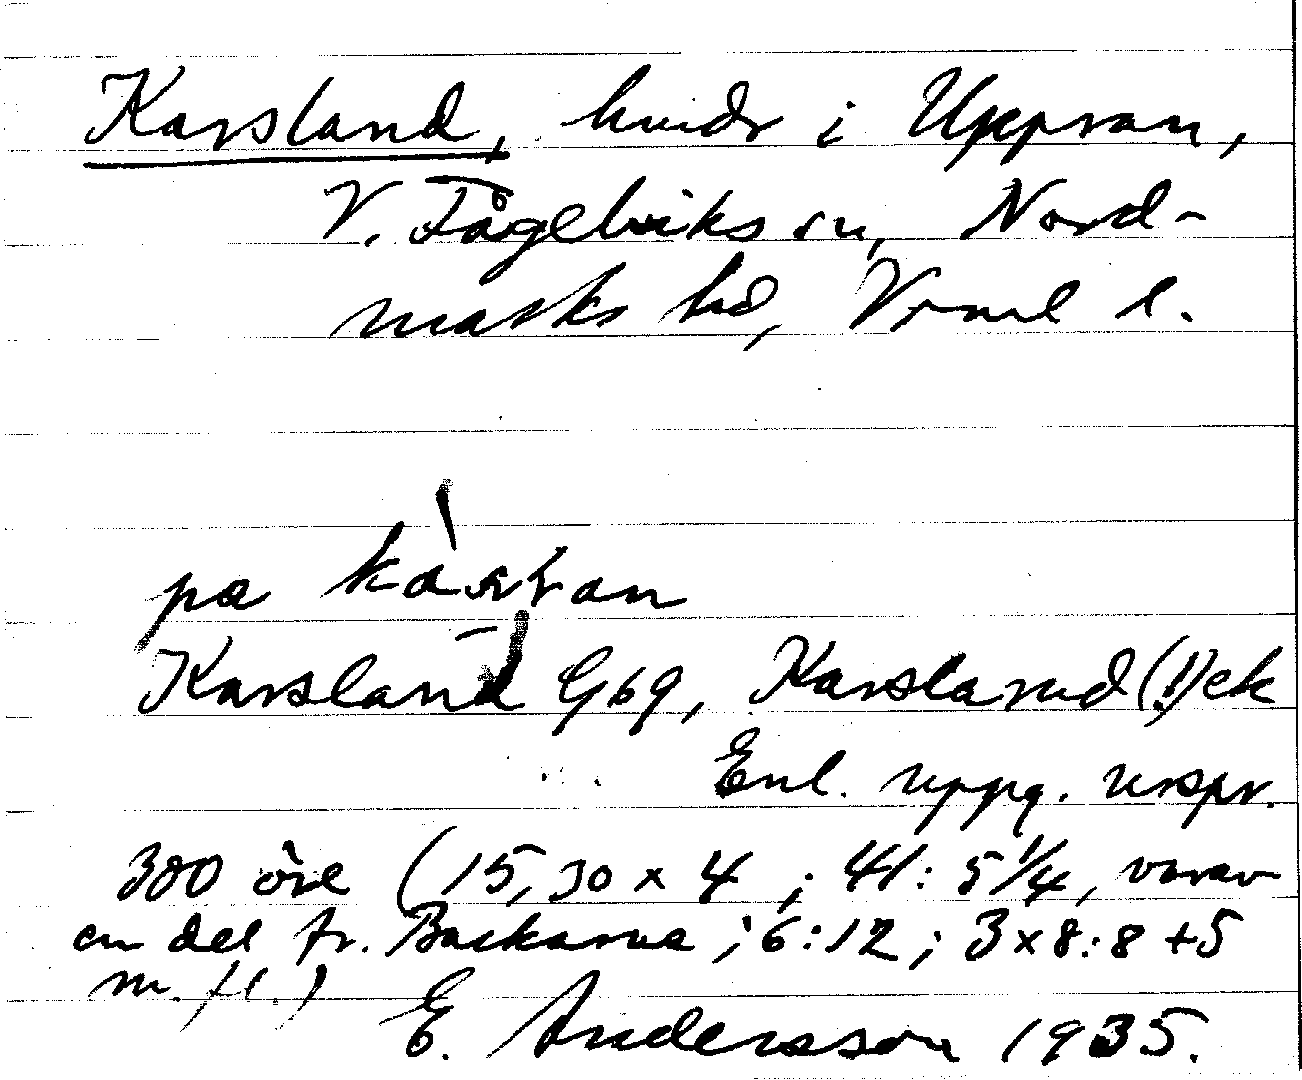 Karsland, hmdr i Uppran,
V. Fågelviks sn, Nord-
marks hd, Vrml l.
pa kàrstan
Karsland Gbg, Karslarud(!)ek
Enl. uppg. urspr.
300 öre (15,30 x 4; 41: 5 1/4, varav
en del fr. Backarna; 6:12; 3x8:8+5
m. fl.)
E. Andersson 1935.